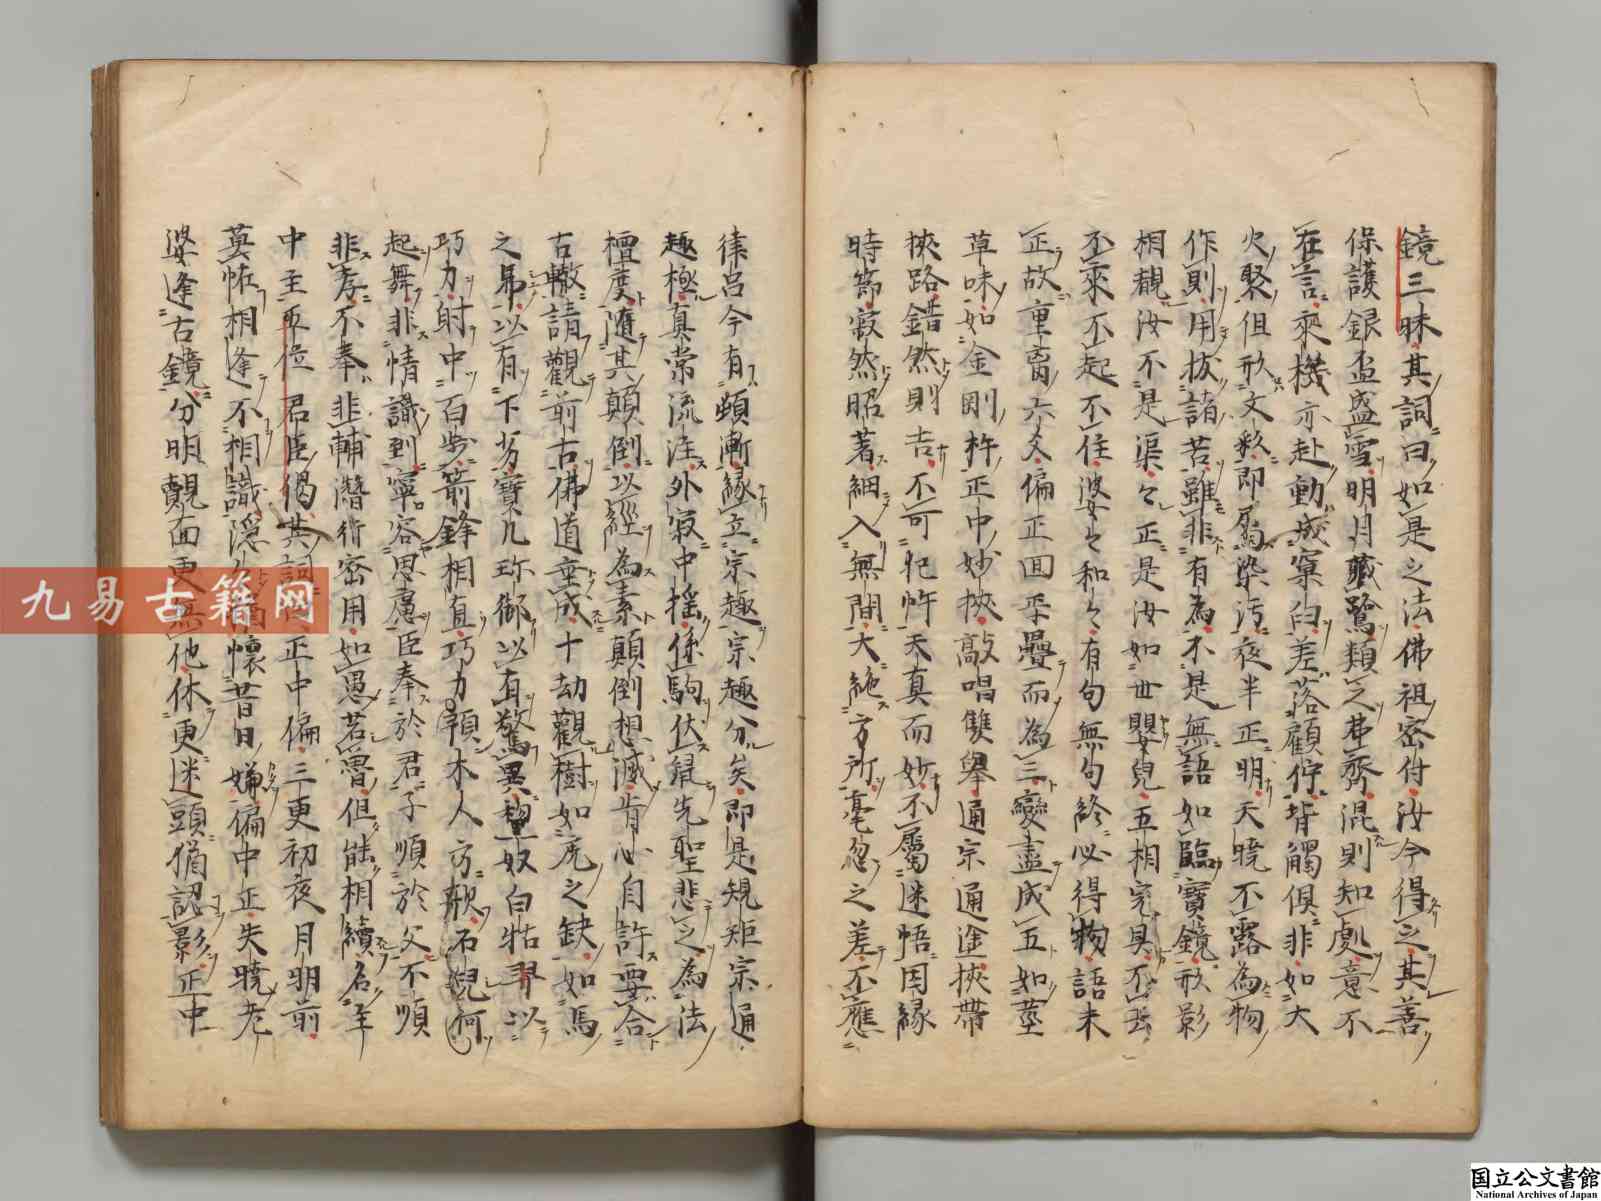 鏡三昧其詞曰如是之法佛祖密付汝今得之其善
保護銀盃盛雪明月藏鷺類之弗齊混則知劇意不
在言來機亦赴動成窠臼差落顧佇背觸俱非如大
火聚但形文彩即屬染汚夜半正明天曉不露為物
作則用拔諸苦雖非有為不是無語如臨寶鏡形影
相覩汝不是渠々正是汝如世嬰兒五相完具不去
不來不起不住婆々和々有句無句終必得物語未
正故重离六爻偏正回平疊而為三變盡成五如荎
草味如金剛杵正中妙挾敲唱雙舉通宗通途挾帶
挾路錯然則吉不可犯忤天真而妙不屬迷悟因緣
時節寂然昭著細入無間大絶方所毫忽之差不應
律呂今有頓漸緣立宗趣宗趣分矣即是規矩宗通
趣極真常流注外寂中搖係駒伏鼠先聖悲之為法
檀度隨其顛倒以緇為素顛倒想滅肯心自許要合
古轍請觀前古佛道垂成十劫觀樹如虎之缺如馬
之馵以有下劣寶几珍御以有驚異狸奴白牯羿以
巧力射中百步箭鋒相直巧力何預木人方歌石兒
起舞非情識到寧容思慮臣奉於君子順於父不順
非孝不奉非輔潛行密用如愚若魯但能相續名主
中主五位君臣偈其詞曰正中偏三更初夜月明前
莫恠相逢不相識隱々猶懷昔日嫌偏中正失曉老
婆逢古鏡分明覿面更無他休更迷頭猶認影正中
九易古籍网
国立公文書館
National Archives of Japan